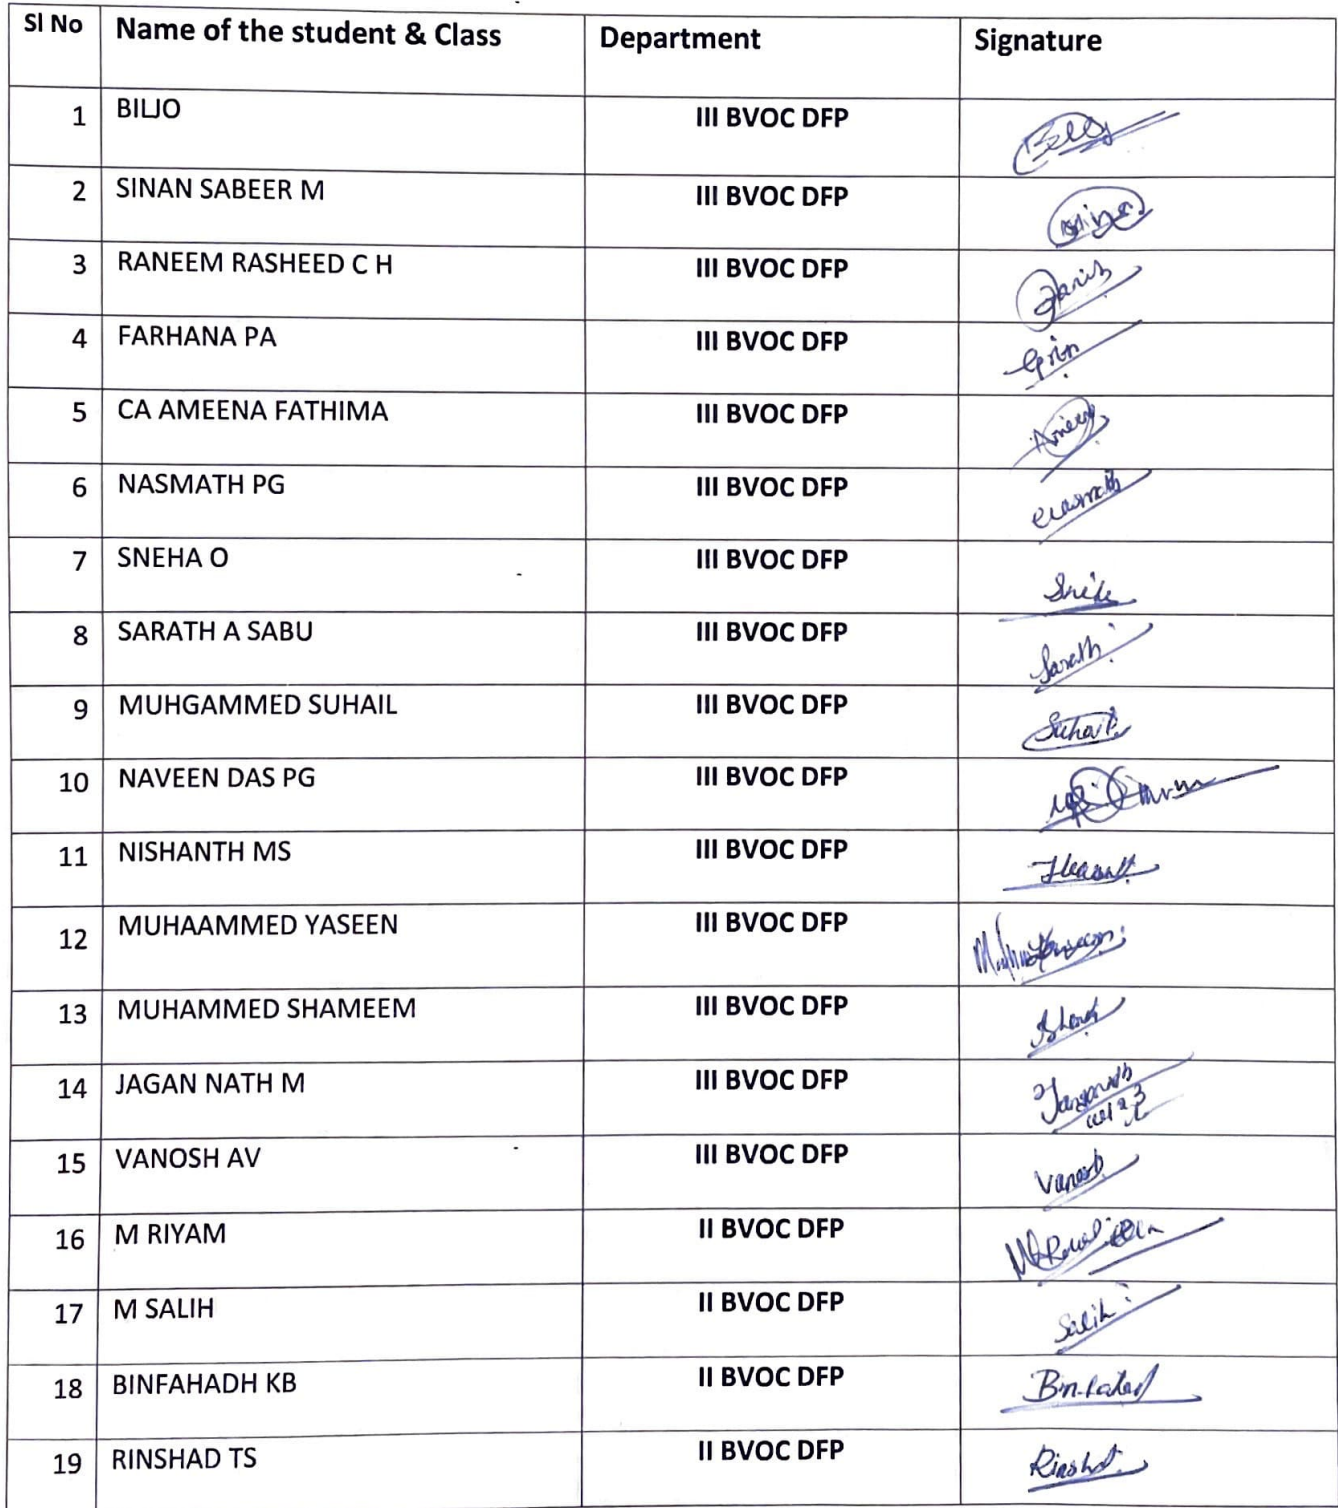 Sl No Name of the student & Class Department Signature
1 BILJO III BVOC DFP
2 SINAN SABEER M III BVOC DFP
3 RANEEM RASHEED C H III BVOC DFP
4 FARHANA PA III BVOC DFP
5 CA AMEENA FATHIMA III BVOC DFP
6 NASMATH PG III BVOC DFP
7 SNEHA O III BVOC DFP
8 SARATH A SABU III BVOC DFP Sarath
9 MUHGAMMED SUHAIL III BVOC DFP Suhail
10 NAVEEN DAS PG III BVOC DFP
11 NISHANTH MS III BVOC DFP
12 MUHAAMMED YASEEN III BVOC DFP
13 MUHAMMED SHAMEEM III BVOC DFP
14 JAGAN NATH M III BVOC DFP
15 VANOSH AV III BVOC DFP Vanosh
16 M RIYAM II BVOC DFP
17 M SALIH II BVOC DFP Salih
18 BINFAHADH KB II BVOC DFP
19 RINSHAD TS II BVOC DFP